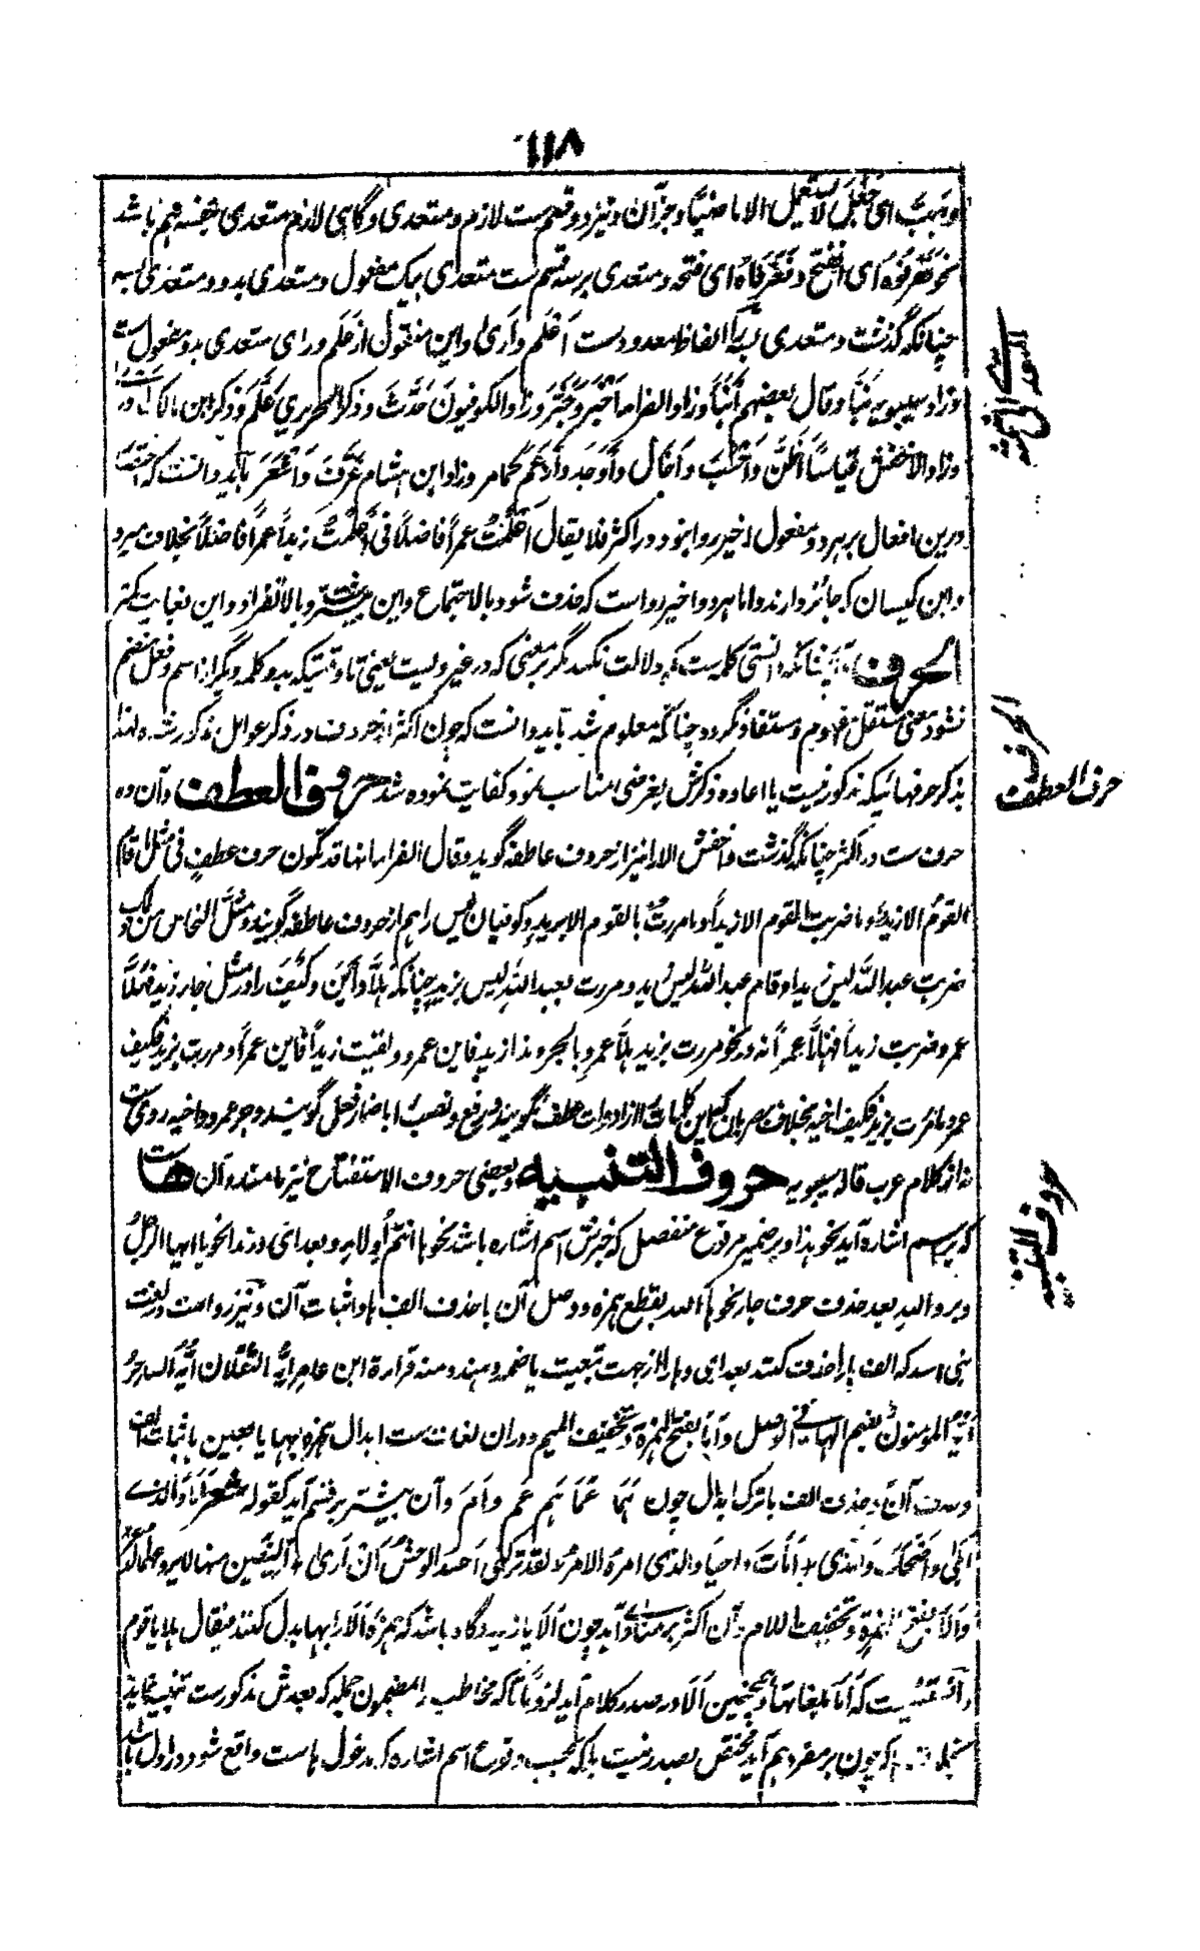 ١١٨
وهب ای جعل لا یستعمل الا ماضیا وجزآن ونیز دو قسم ست لازم ومتعدی وگاهی لازم متعدی بنفسه هم باشد
نحو فَغَرَ فُوه ای انفتح وفَغَرَ فاهُ ای فتحه ومتعدی بر سه قسم ست متعدی بیک مفعول ومتعدی بدو ومتعدی بسه
چنانکه گذشت ومتعدی بسه را الفاظ معدود ست اَعْلَم واَریٰ واین منقول از علم ورای متعدی بدو مفعول ست
وزاد سیبویه نَبَّأ وقال بعضهم اَنْبَأ وزاد الفراء اَخْبَرَ وخَبَّرَ وزاد الکوفیون حَدَّثَ وذکر الحریری عَلَّمَ وذکر ابن مالک
وزاد الاخفش قیاسًا اَظَنَّ واَحْسَبَ واَخالَ واَوْجَدَ واَزْعَمَ کما مر وزاد ابن هشام عَرَّفَ واَشْعَرَ باید دانست که
درین افعال بر هر دو مفعول اخیر روا نبود در اکثر فلا یقال اَعْلَمْتُ عمراً فاضلاً فی اَعْلَمْتُ زیداً عمراً فاضلاً بخلاف
وابن کیسان که جائز دارند واما هر دو اخیر رواست که حذف شود بالاجتماع واین بیشتر وبالانفراد واین بغایت کمتر
الحرف چنانکه دانستی کلمه ست که دلالت نکند مگر بر معنی که در غیر ویست یعنی تا وقتیکه بدو کلمه دیگر از اسم وفعل منضم
نشود معنی مستقل مفهوم ومستفاد نگردد چنانکه معلوم شد باید دانست که چون اکثر از حروف در ذکر عوامل مذکور شده لهذا
بذکر حرفهائیکه مذکور نیست یا اعاده ذکرش بغرضی مناسب نمود کفایت نموده شد حروف العطف وآن ده
حرف ست در اکثر چنانکه گذشت واخفش الا را نیز از حروف عاطفه گوید وقال الفراء انها قد تکون حرف عطف فی مثل ما قام
القوم الا زیدٌ وما ضربت القوم الا زیداً وما مررت بالقوم الا بزید وکوفیان لیس را هم از حروف عاطفه گویند ومثل النحاس
ضربت عبد اللّٰه لیس زیدا وقام عبد اللّٰه لیس زید ومررت بعبد اللّٰه لیس بزید چنانکه هَلَّا واَیْنَ وکَیْفَ را در مثل جاء زید فهلّا
عمرو ضربت زیداً فهلّا عمراً نه در نحو مررت بزید هلّا عمرٍو بالجر وهذا زید فاین عمرو ولقیت زیداً فاین عمراً ومررت بزید فکیف
عمرو بخلاف بصریان که این کلمات را از ادوات عطف نگویند ورفع ونصب را باضمار فعل گویند
نه از کلام عرب قاله سیبویه حروف التنبیه وبعضی حروف الاستفتاح نیز نامند وآن هاست
که بر اسم اشاره آید نحو هذا وبر ضمیر مرفوع منفصل که خبرش اسم اشاره باشد نحو ها انتم اُولاءِ وبعد ای در ندا نحو یا ایها الرجلُ
وبر واللّٰه بعد حذف حرف جار نحو هأ اللّٰه بقطع همزه ووصل آن با حذف الف ها واثبات آن ونیز رواست در لغت
بنی اسد که الف ها را حذف کنند بعد ای وها را از جهت تبعیت یا ضمه دهند ومنه قراءة ابن عامر اَیُّهُ الثقلان اَیُّهُ الساحر
اَیُّهُ المؤمنون بضم الهاء فی الوصل واَمَا بفتح الهمزة وتخفیف المیم ودران لغات ست ابدال همزه بها یا بعین باثبات الف
وحذف آن وحذف الف با ترک ابدال چون هَمَا عَمَا هَم عَم واَمَ وآن بیشتر بر قسم آید کقوله شعر اَمَا والذی
اَبْکیٰ واَضْحَکَ والذی اَمَاتَ واَحیَا والذی امره الامر لقد ترکتنی احسد الوحش ان اری الیفین منها لا یروعهما الذعر
واَلَا بفتح همزة وتخفیف اللام وآن اکثر بر منادی آید چون اَلَا یا زید وگاه باشد که همزه اَلَا را بها بدل کنند فیقال هلا یا قوم
که اَمَا بلغاتها وهمچنین اَلَا در صدر کلام آید لزوماً تا که مخاطب را بمضمون جمله که بعدش مذکور ست تنبیه نماید
که چون بر مفرد هم آید مختص بصدر نیست بلکه بحسب وقوع اسم اشاره که مدخول هاست واقع شود در اول باشد
الحرف
حرف العطف
حروف التنبیه